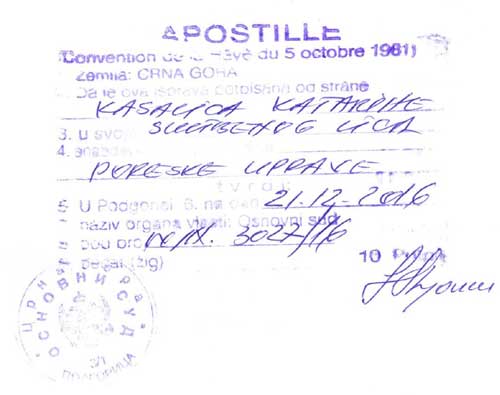 APOSTILLE
(Convention de la Haye du 5 octobre 1961)
Zemlja: CRNA GORA
Da je ova isprava potpisana od strane
KASALICA KATARINE
3. u svoj
SLUŽBENOG LICA
4.
PORESKE UPRAVE
5. U Podgorici 6. na dan 21.12.2016
naziv organa vlasti: Osnovni sud
pod br. 3027/16
pečat (žig)
10
ОСНОВНИ СУД
ПОДГОРИЦА